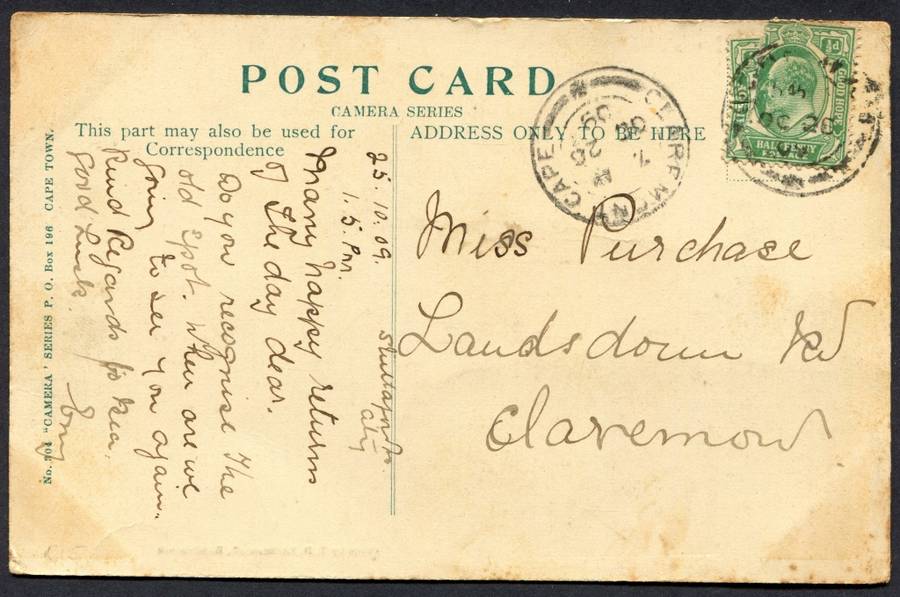 POST CARD
CAMERA SERIES
This part may also be used for
Correspondence
ADDRESS ONLY TO BE HERE
No. 704 "CAMERA" SERIES P. O. Box 196 CAPE TOWN.
25. 10. 09.
1. 5. Pm.
City
Many happy returns
of the day dear.
Do you recognise the
old spot. When are we
going to see you again.
Kind Regards to
Good Luck.
Miss Purchase
Landsdown Rd
Claremont
CLAREMONT
CAPE
GOOD HOPE
HALF PENNY
½d